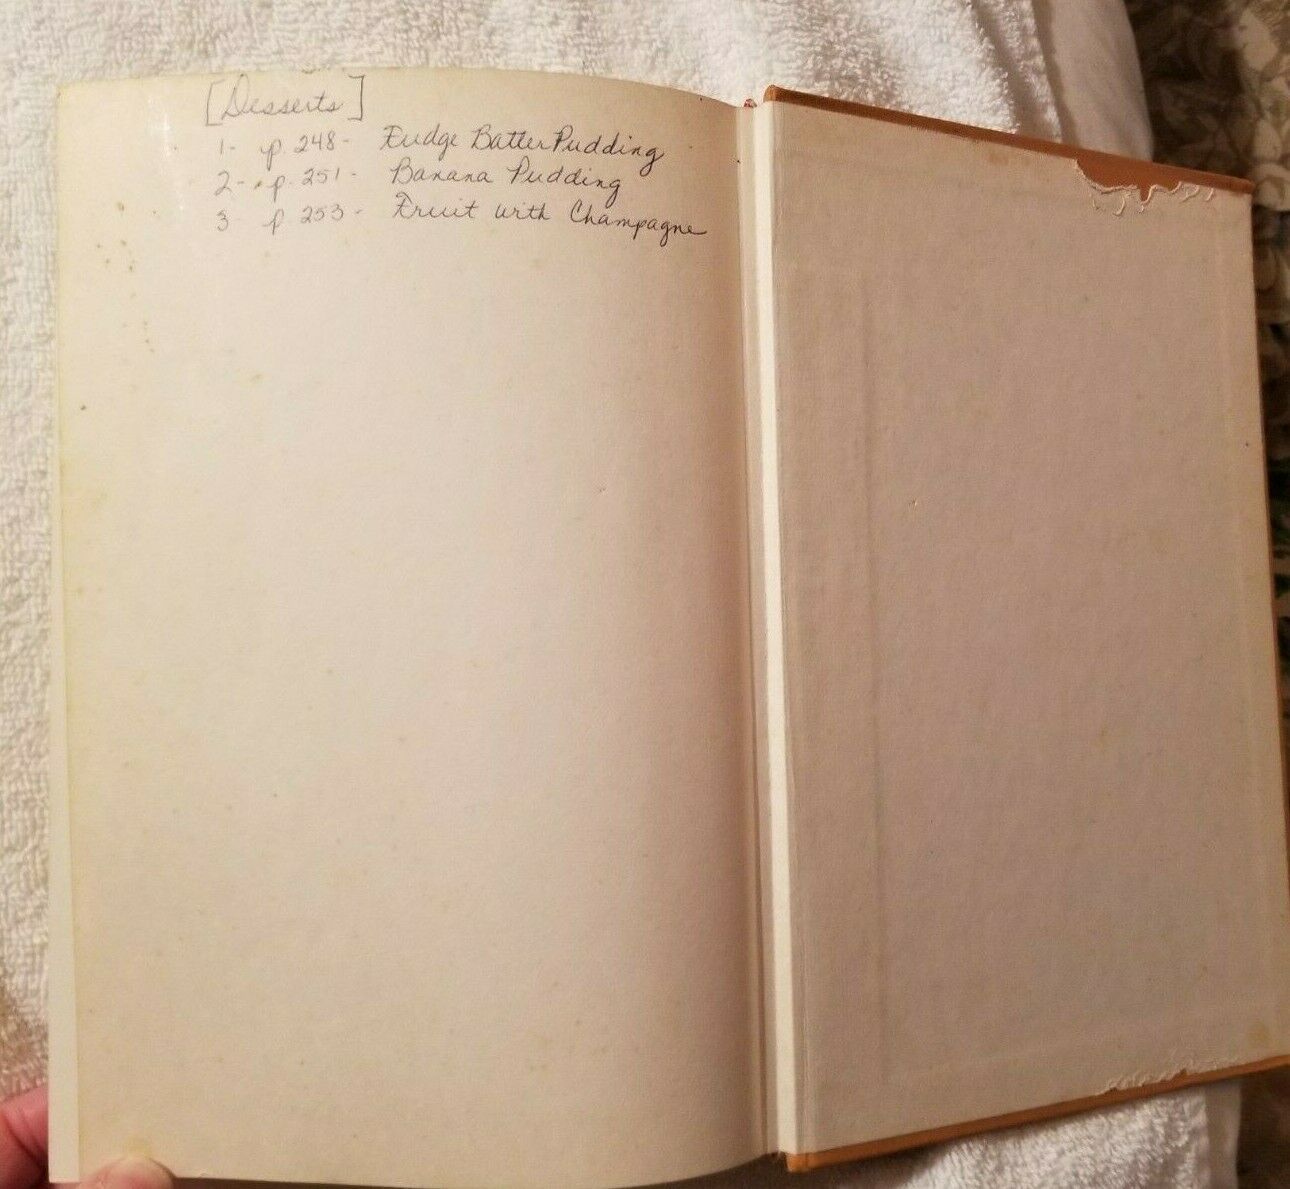 [Desserts]
1- p. 248- Fudge Batter Pudding
2- p. 251- Banana Pudding
3 p 253- Fruit with Champagne